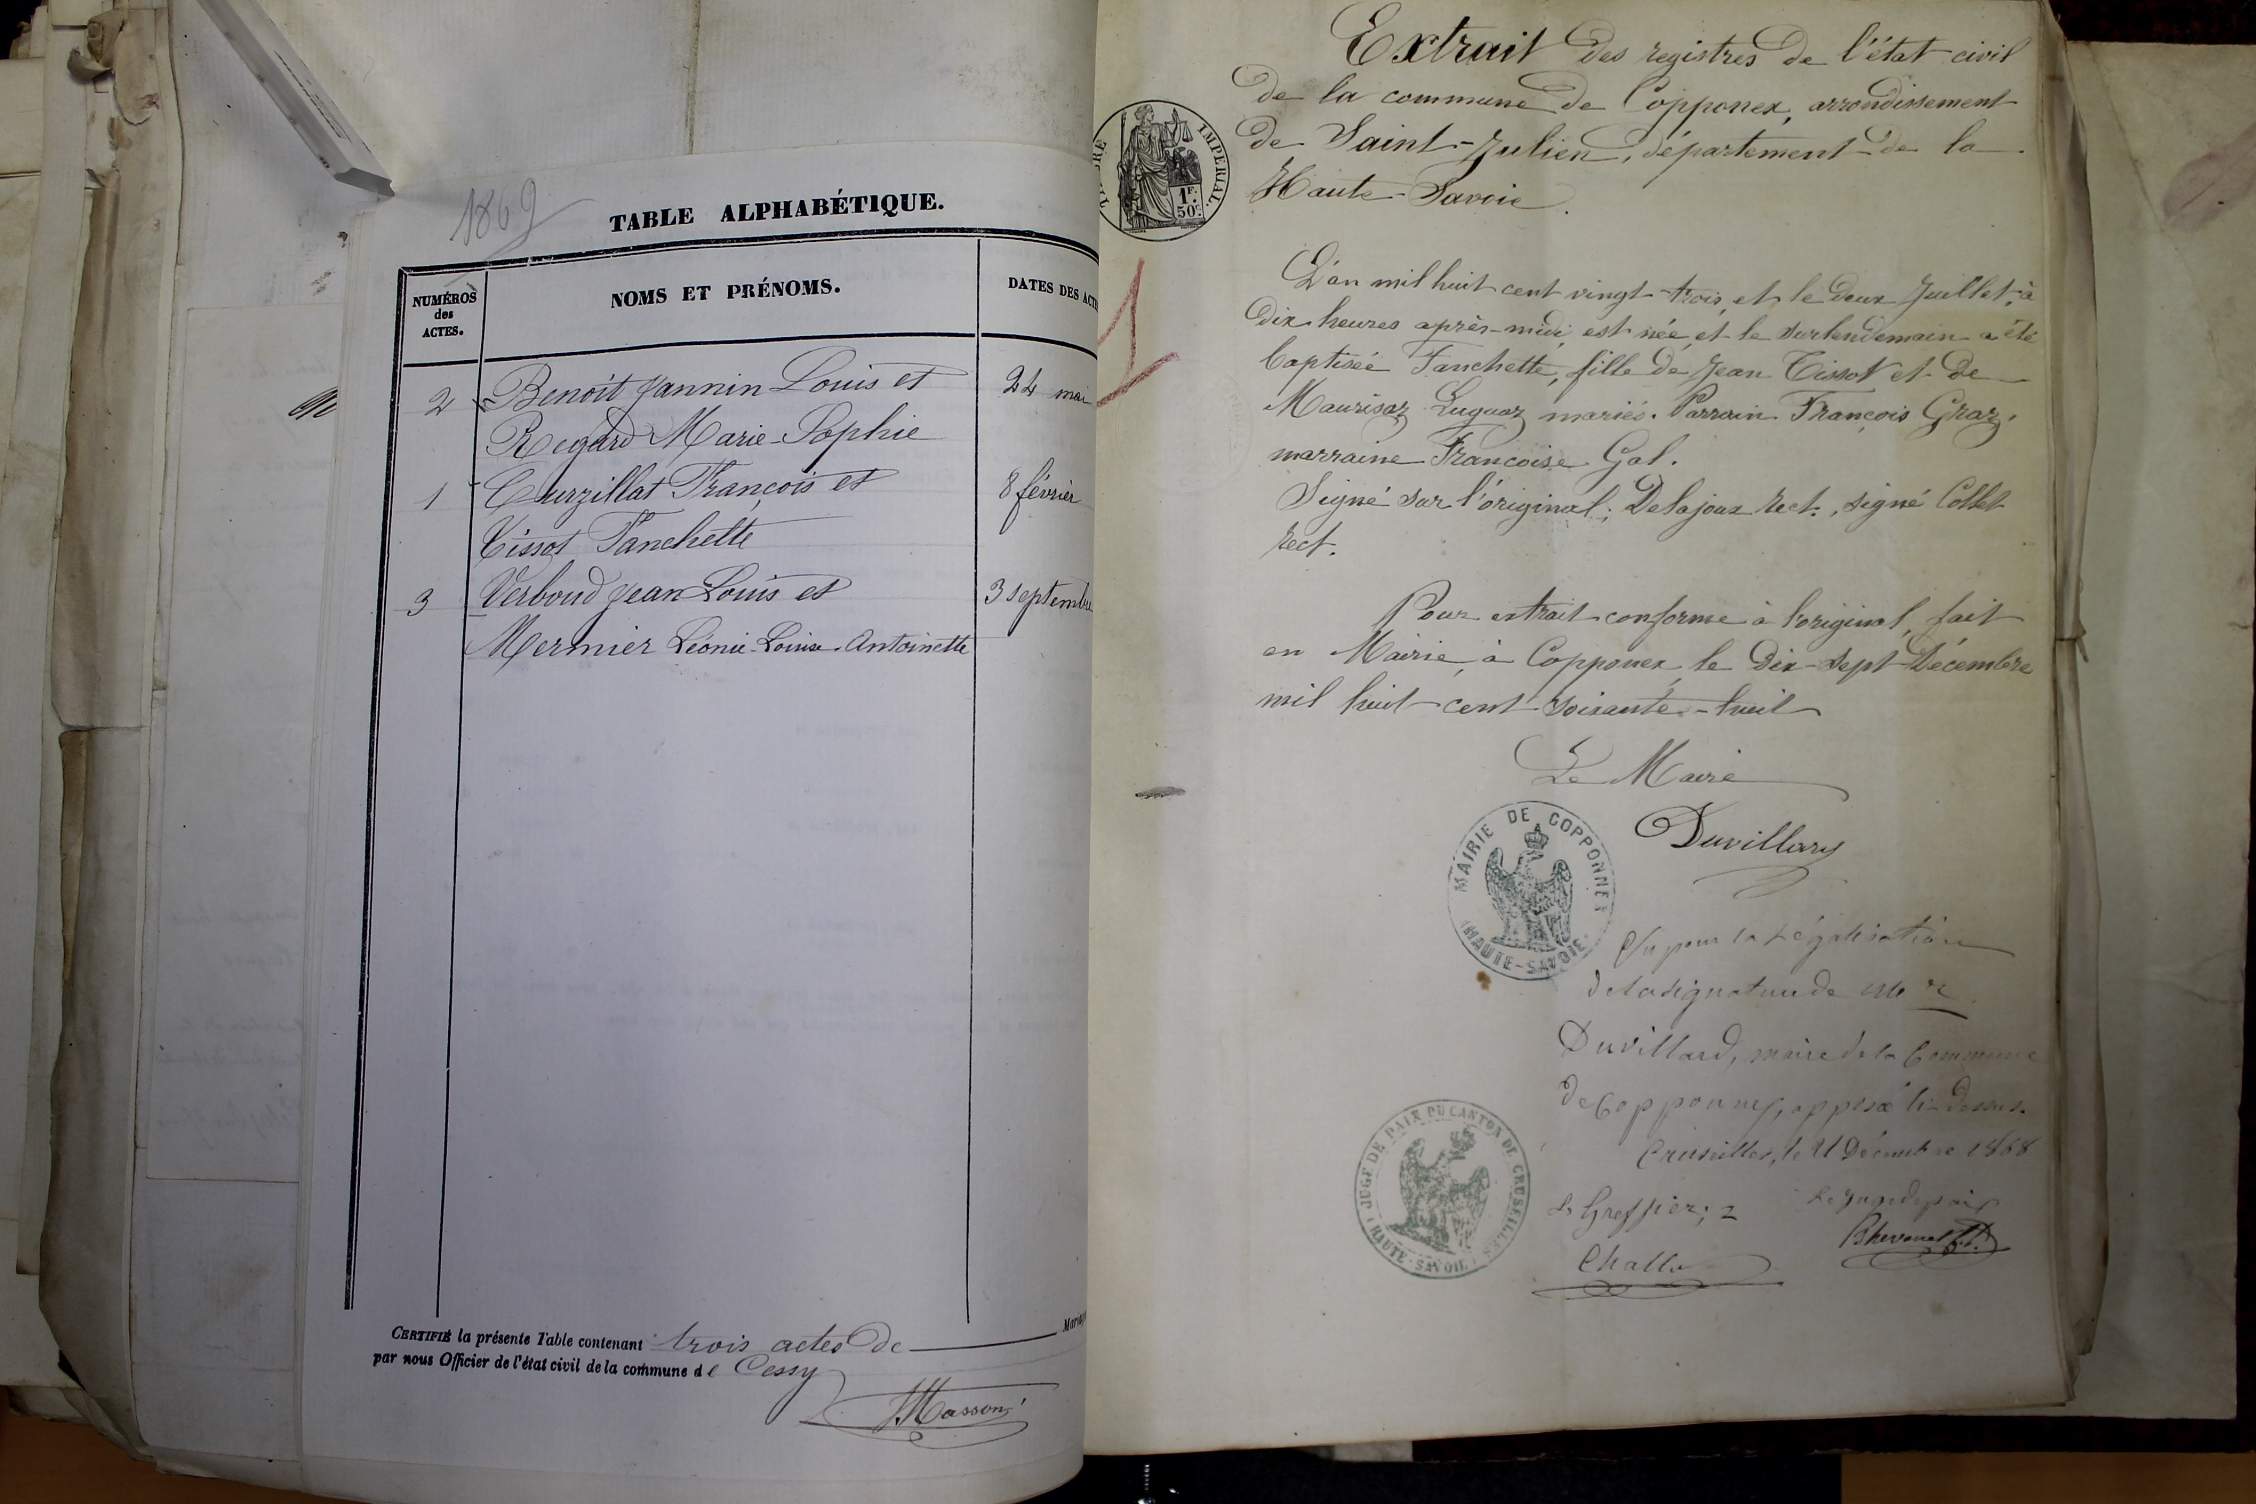 1869
TABLE ALPHABÉTIQUE.
NUMÉROS des ACTES.
NOMS ET PRÉNOMS.
DATES DES ACTE
2 Benoit Jannin Louis et 24 mai
Regard Marie-Sophie
1 Curzillat François et 8 février
Tissot Fanchette
3 Verboud Jean Louis et 3 septembre
Mermier Léonie-Louise-Antoinette
CERTIFIÉ la présente Table contenant trois actes de Mariag
par nous Officier de l'état civil de la commune de Cessy
JMasson
TIMBRE IMPERIAL.
1F. 50c
Extrait des registres de l'état civil
de la commune de Copponex, arrondissement
de Saint-Julien, département de la
Haute-Savoie.
1
L'an mil huit cent vingt-trois, et le deux Juillet, à
dix heures après-midi, est née, et le surlendemain a été
baptisée Fanchette, fille de Jean Tissot et de
Maurisaz Luguaz mariés. Parrain François Graz,
marraine Francoise Gal.
Signé sur l'original; Delajoux Rect., signé Collet
Rect.
Pour extrait conforme à l'original, fait
en Mairie, à Copponex, le dix-sept Décembre
mil huit cent soixante-huit
Le Maire
Duvillard
MAIRIE DE COPPONNEX
(HAUTE-SAVOIE)
Vu pour la légalisation
de la signature de Mr
Duvillard, maire de la Commune
de Copponnex, apposée ci-dessus.
Cruseilles, le 21 Décembre 1868
JUGE DE PAIX DU CANTON DE CRUSEILLES
(HAUTE-SAVOIE)
Le Greffier;
Le Juge de paix